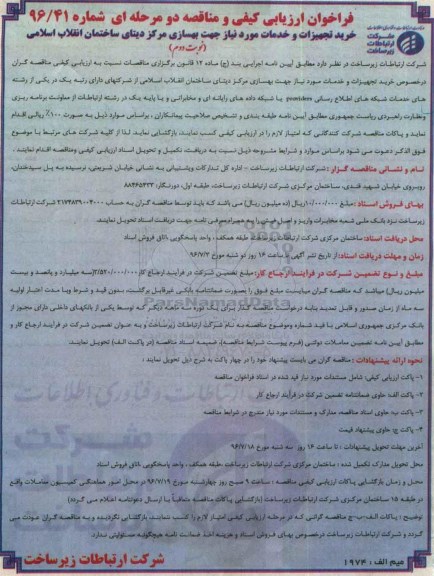 فراخوان ارزیابی کیفی و مناقصه دو مرحله ای شماره ۹۶/۴۱
خرید تجهیزات و خدمات مورد نیاز جهت بهسازی مرکز دیتای ساختمان انقلاب اسلامی
(نوبت دوم)
شرکت ارتباطات زیرساخت
شرکت ارتباطات زیرساخت در نظر دارد مطابق آیین نامه اجرایی بند (ج) ماده ۱۲ قانون برگزاری مناقصات نسبت به ارزیابی کیفی مناقصه گران
درخصوص خرید تجهیزات و خدمات مورد نیاز جهت بهسازی مرکز دیتای ساختمان انقلاب اسلامی از شرکتهای دارای رتبه یک در یکی از رشته
های خدمات شبکه های اطلاع رسانی providers یا شبکه داده های رایانه ای و مخابراتی و یا پایه یک در رشته ارتباطات از معاونت برنامه ریزی
ونظارت راهبردی ریاست جمهوری مطابق آیین نامه طبقه بندی و تشخیص صلاحیت پیمانکاران، براساس موارد ذیل به صورت ۱۰۰٪ ریالی اقدام
نماید و پاکات مناقصه شرکت کنندگانی که امتیاز لازم را در ارزیابی کیفی کسب نمایند، بازگشائی نماید. لذا از کلیه شرکت های مرتبط با موضوع
فوق الذکر دعوت می شود براساس موارد و شرایط مشروحه ذیل نسبت به دریافت، تکمیل و تحویل اسناد ارزیابی کیفی ومناقصه اقدام نمایند.
نام و نشانی مناقصه گزار: شرکت ارتباطات زیرساخت - اداره کل تدارکات وپشتیبانی به نشانی خیابان شریعتی، نرسیده به پل سیدخندان،
روبروی خیابان شهید قندی، ساختمان مرکزی شرکت ارتباطات زیرساخت، طبقه اول، دورنگار:
بهای فروش اسناد: مبلغ ریال (ده میلیون ریال) می باشد که باید توسط مناقصه گران به حساب شرکت ارتباطات
زیرساخت نزد بانک ملی شعبه مخابرات واریز و اصل فیش را به همراه معرفی نامه جهت دریافت اسناد تحویل نمایند.
محل دریافت اسناد: ساختمان مرکزی شرکت ارتباطات زیرساخت طبقه همکف، واحد پاسخگویی، اتاق فروش اسناد
زمان و مهلت دریافت اسناد: از تاریخ نشر آگهی تا ساعت ۱۶ روز دو شنبه مورخ ۹۶/۷/۳
مبلغ و نوع تضمین شرکت در فرایند ارجاع کار: مبلغ تضمین شرکت در فرآیند ارجاع کار
میلیون ریال) میباشد که مناقصه گران میبایست مبلغ فوق را بصورت ضمانتنامه بانکی غیرقابل برگشت، بدون قید و شرط وبا مدت اعتبار اولیه
سه ماه از زمان صدور و قابل تمدید بنابه درخواست مناقصه گذار برای یک دوره سه ماهه دیگر که توسط یکی از بانکهای داخلی دارای مجوز از
بانک مرکزی جمهوری اسلامی با قید شماره وموضوع مناقصه به نام شرکت ارتباطات زیرساخت و به عنوان تضمین شرکت در فرآیند ارجاع کار و
مطابق آیین نامه تضمین معاملات دولتی (فرم پیوست شرایط مناقصه)، ضمیمه اسناد مناقصه (در پاکت الف) تحویل نمایند.
نحوه ارائه پیشنهادات: مناقصه گران می بایست پیشنهاد خود را در چهار پاکت به شرح ذیل تحویل نمایند:
۱- پاکت ارزیابی کیفی: شامل مستندات مورد نیاز قید شده در اسناد فراخوان مناقصه
۲- پاکت الف: حاوی ضمانتنامه تضمین شرکت در فرآیند ارجاع کار
۳- پاکت ب: حاوی اسناد مناقصه، مدارک و مستندات مورد نیاز مندرج در شرایط مناقصه
۴- پاکت ج: حاوی پیشنهاد قیمت
آخرین مهلت تحویل پیشنهادات: تا ساعت ۱۶ روز سه شنبه مورخ ۹۶/۷/۱۸
محل تحویل مدارک تکمیل شده: ساختمان مرکزی شرکت ارتباطات زیرساخت، طبقه همکف، واحد پاسخگویی، اتاق فروش اسناد
محل و زمان بازگشایی پاکات ارزیابی کیفی مناقصه: ساعت ۹ صبح روز چهارشنبه مورخ ۹۶/۷/۱۹ در محل امور هماهنگی کمیسیون معاملات واقع
در طبقه ۱۵ ساختمان مرکزی شرکت ارتباطات زیرساخت (بازگشایی پاکات مناقصه متعاقباً با ارسال دعوتنامه اعلام می گردد)
توضیح: پاکات الف-ب-ج مناقصه گرانی که در مرحله ارزیابی کیفی امتیاز لازم را کسب ننمایند، بازگشائی نگردیده و به مناقصه گران عودت می
گردد و شرکت ارتباطات زیرساخت بابت هزینه های فراخوان وفروش اسناد و هزینه اخذ ضمانت نامه هیچگونه مسئولیتی ندارد.
میم الف: ۱۹۷۴
شرکت ارتباطات زیرساخت
ParsNamadData